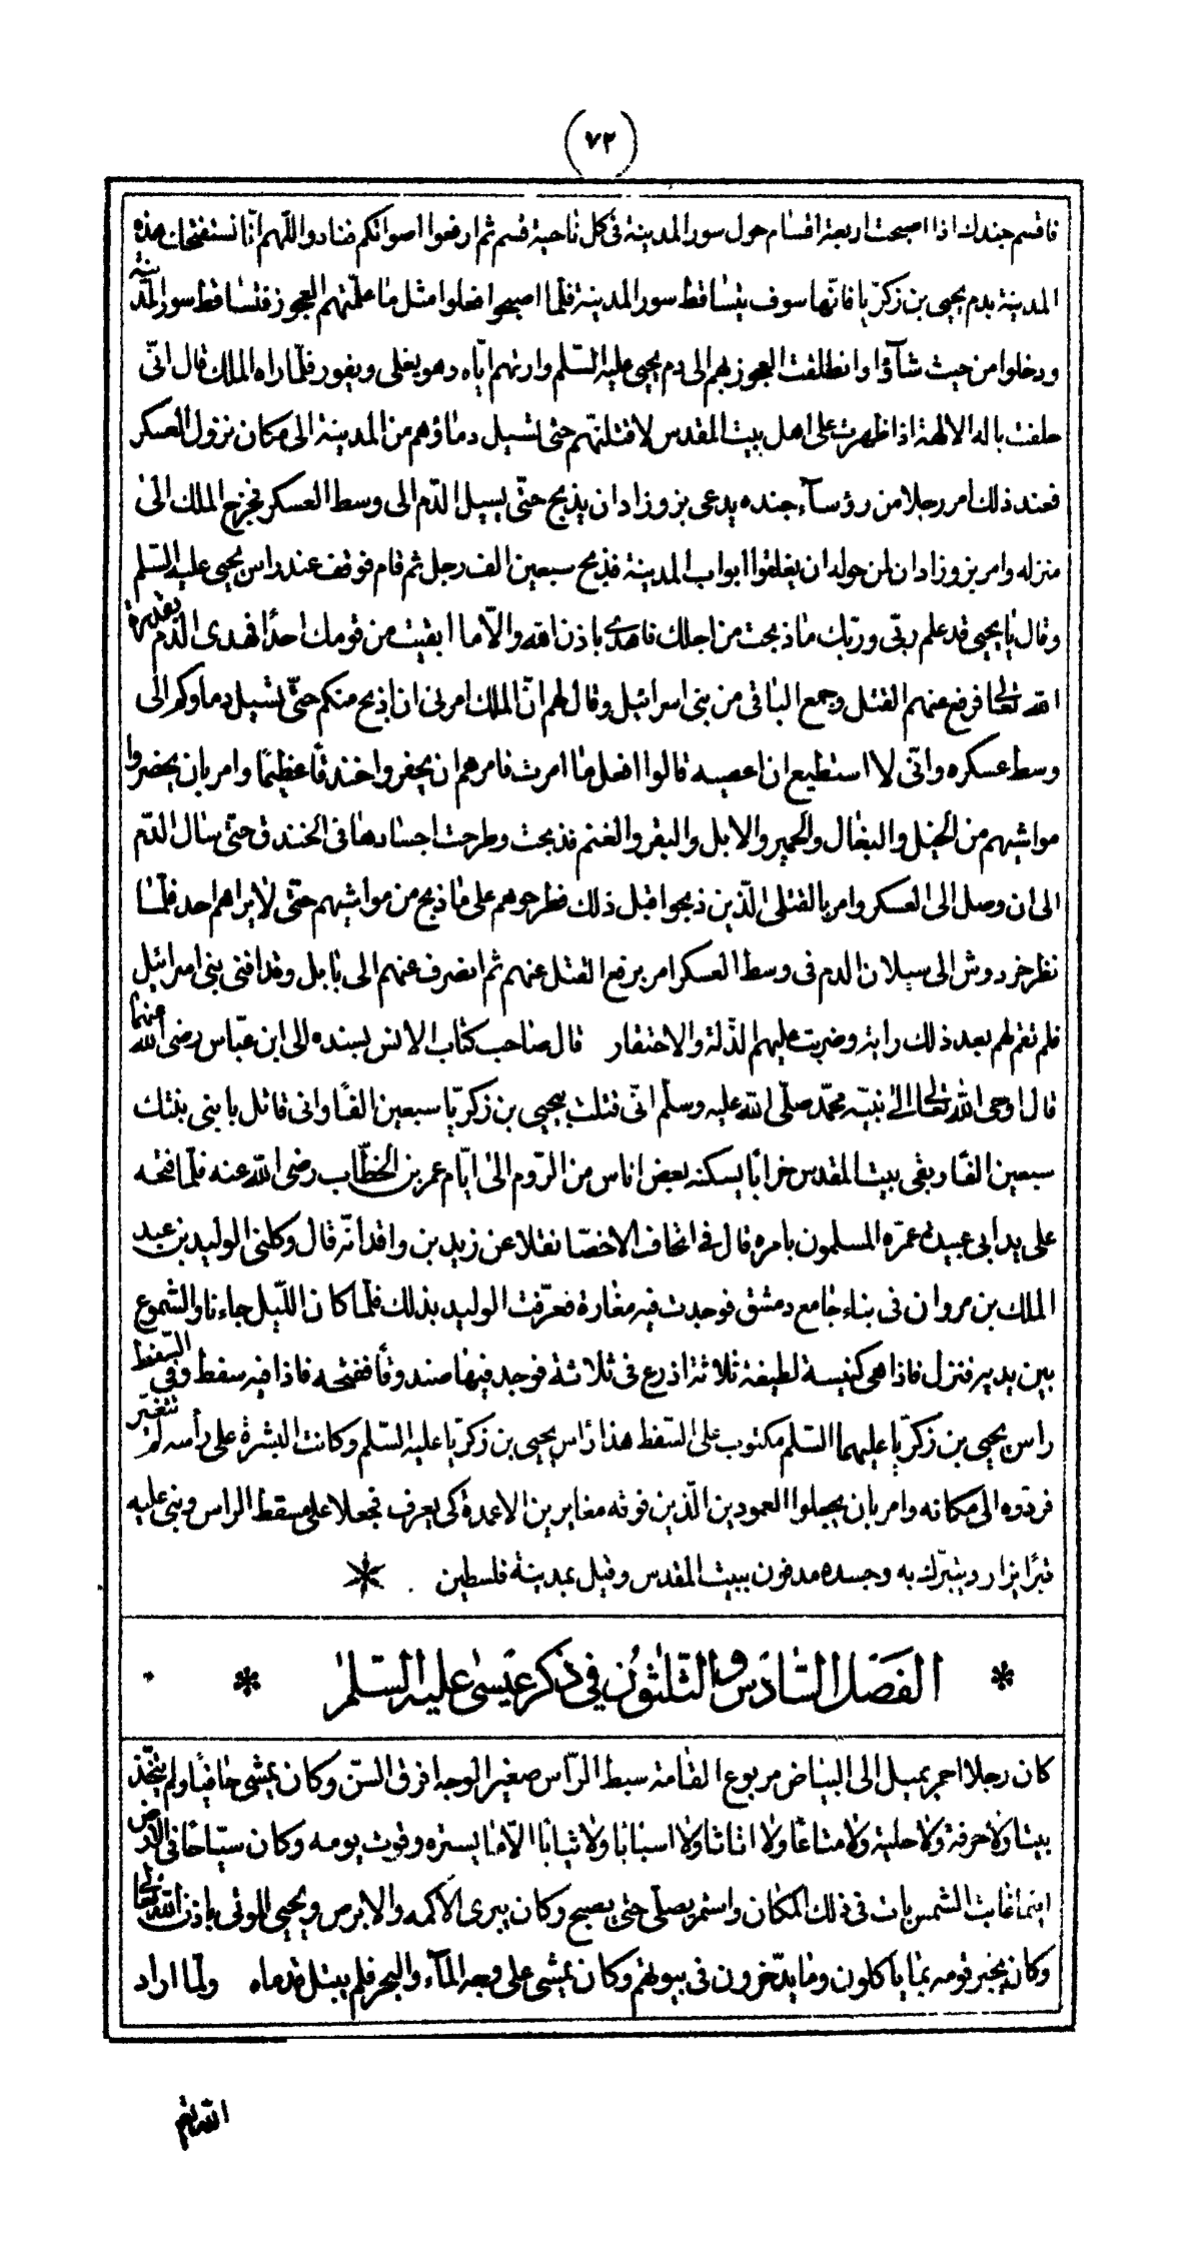 (٧٢)
فاقسم جندك اذا اصبحت اربعة اقسام حول سور المدينة فى كل ناحية قسم ثم ارفعوا اصواتكم فنادوا اللّهم انّا نستفتحك هذه
المدينة بدم يحيى بن زكريّا فانّها سوف يتساقط سور المدينة فلما اصبحوا فعلوا مثل ما علّمتهم العجوز فتساقط سور المدينة
ودخلوا من حيث شآؤا وانطلقت العجوز بهم الى دم يحيى عليه السّلم وارتهم ايّاه وهو يغلى ويفور فلمّا راه الملك قال انّى
حلفت باله الالهة اذا ظهرت على اهل بيت المقدس لاقتلنّهم حتى تسيل دماؤهم من المدينة الى مكان نزول العسكر
فعند ذلك امر رجلا من رؤسآء جنده يدعى بزوزادان يذبح حتّى يسيل الدّم الى وسط العسكر فخرج الملك الى
منزله وامر بزوزادان لمن حوله ان يغلقوا ابواب المدينة فذبح سبعين الف رجل ثم قام فوقف عند راس يحيى عليه السّلم
وقال يا يحيى قد علم ربّى وربّك ما ذبحت من اجلك فاهدء باذن الله والّا ما ابقيت من قومك احدًا فهدى الدّم بقدرة
الله تعالى فرفع عنهم القتل وجمع الباقى من بنى اسرائيل وقال لهم انّ الملك امرنى ان اذبح منكم حتّى تسيل دماوكم الى
وسط عسكره وانّى لا استطيع ان اعصيه قالوا افعل ما امرت فامرهم ان يحفروا خندقًا عظيمًا وامر بان يحضروا
مواشيهم من الخيل والبغال والحمير والابل والبقر والغنم فذبحت وطرحت اجسادها فى الخندق حتى سال الدّم
الى ان وصل الى العسكر وامر بالقتلى الّذين ذبحوا قبل ذلك فطرحوهم على ما ذبح من مواشيهم حتّى لا يراهم احد فلمّا
نظر خردوش الى سيلان الدم فى وسط العسكر امر برفع القتل عنهم ثم انصرف عنهم الى بابل وقد افنى بنى اسرائيل
فلم تقم لهم بعد ذلك راية وضربت عليهم الذّلة والاحتقار قال صاحب كتاب الانس بسنده الى ابن عبّاس رضى الله عنهما
قال اوحى الله تعالى الى نبيّه محمّد صلّى الله عليه وسلّم انّى قتلت بيحيى بن زكريّا سبعين الفًا وانى قاتل بابنى بنتك
سبعين الفًا وبقى بيت المقدس خرابًا يسكنه بعض اناس من الرّوم الى ايّام عمر بن الخطّاب رضى الله عنه فلمّا فتحه
على يد ابى عبيدة عمّره المسلمون بامره قال فى اتحاف الاخصّا نقلا عن زيد بن واقد انّه قال وكلنى الوليد بن عبد
الملك بن مروان فى بناء جامع دمشق فوجدت فيه مغارة فعرّفت الوليد بذلك فلمّا كان اللّيل جاءنا والشموع
بين يديه فنزل فاذا هى كنيسة لطيفة ثلاثة اذرع فى ثلاثة فوجد فيها صندوقًا ففتحه فاذا فيه سفط وفى السّفط
راس يحيى بن زكريّا عليهما السّلم مكتوب على السّفط هذا راس يحيى بن زكريّا عليه السّلم وكانت البشرة على رأسه لم تتغيّر
فردّوه الى مكانه وامر بان يجعلوا العمودين الّذين فوقه مغايرين الاعمدة كى يعرف فجعلا على مسقط الراس وبنى عليه
قبرًا يزار ويتبرّك به وجسده مدفون ببيت المقدس وقيل بمدينة فلسطين
الفصل السّادس والثّلثون فى ذكر عيسى عليه السّلم
كان رجلا احمر يميل الى البياض مربوع القامة سبط الرّاس صغير الوجه افرق السّن وكان يمشى حافيًا ولم يتّخذ
بيتا ولا حرفة ولا حلية ولا متاعًا ولا اثاثا ولا اسبابا ولا ثيابًا الّا ما يستره وقوت يومه وكان سيّاحًا فى الارض
اينما غابت الشمس بات فى ذلك المكان واستمر يصلّى حتى يصبح وكان يبرى الاكمه والابرص ويحيى الموتى باذن الله تعالى
وكان يخبر قومه بما ياكلون وما يدّخرون فى بيوتهم وكان يمشى على وجه المآء والبحر فلم يبتل قدماه ولما اراد
الله رفعه